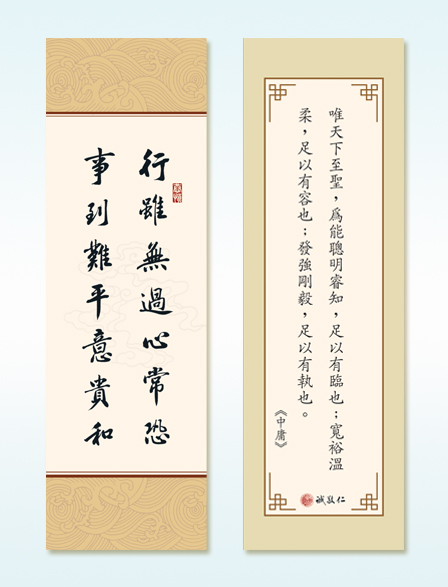 行雖無過心常恐
事到難平意貴和
唯天下至聖，為能聰明睿知，足以有臨也；寬裕溫
柔，足以有容也；發強剛毅，足以有執也。
《中庸》
誠敬仁